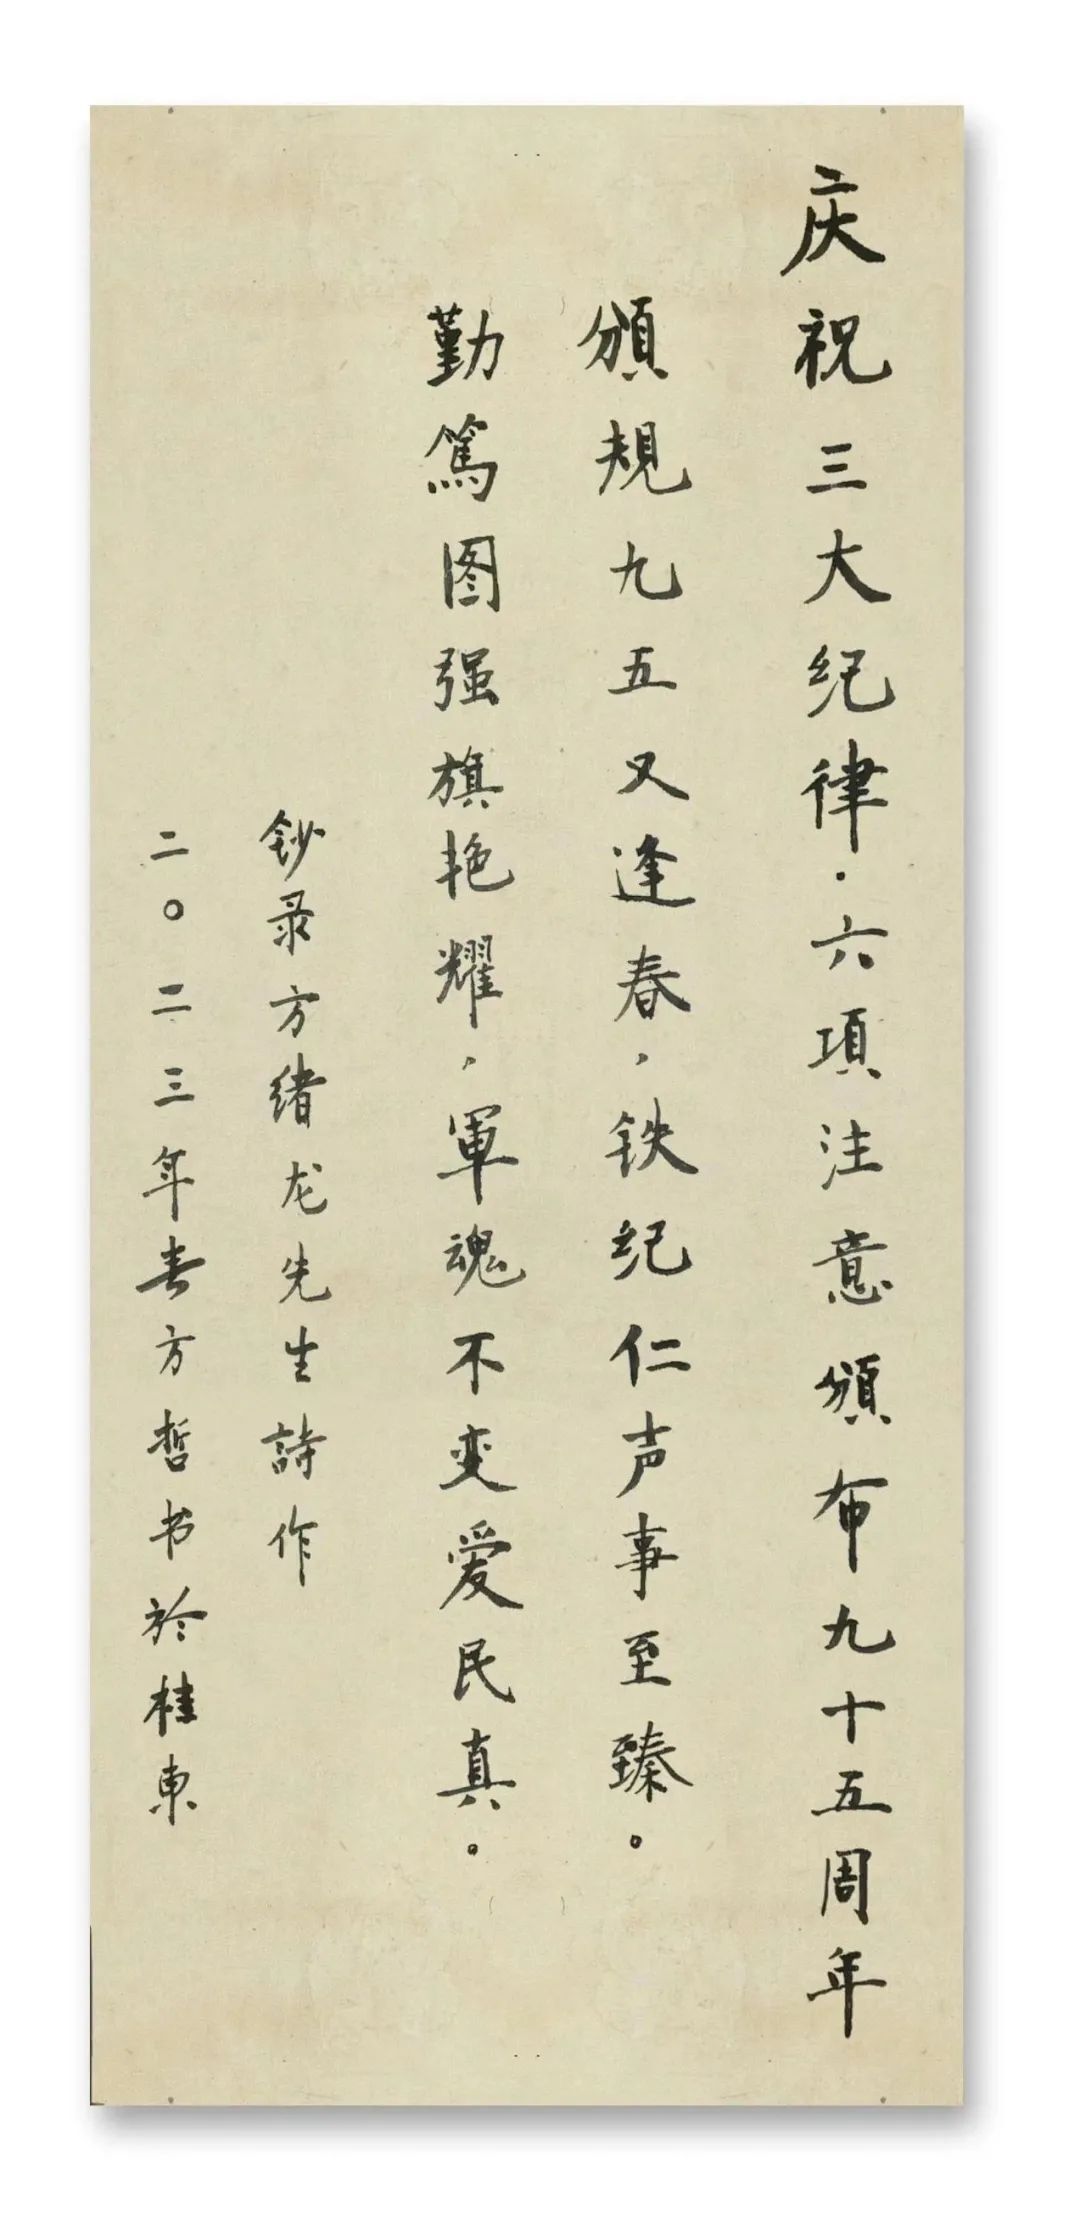 庆祝三大纪律·六項注意頒布九十五周年
頒規九五又逢春，铁纪仁声事至臻。
勤篤图强旗艳耀，軍魂不变爱民真。
鈔录方绪龙先生詩作
二〇二三年春方哲书於桂東